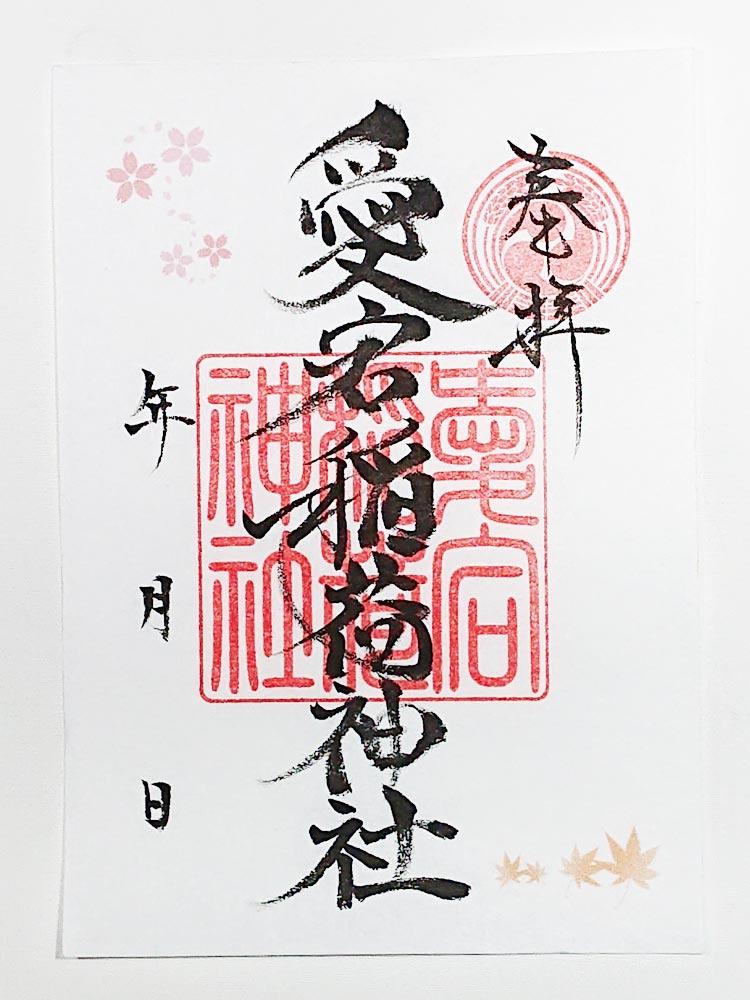 奉拝
愛宕稲荷神社
愛宕稲荷神社
年 月 日